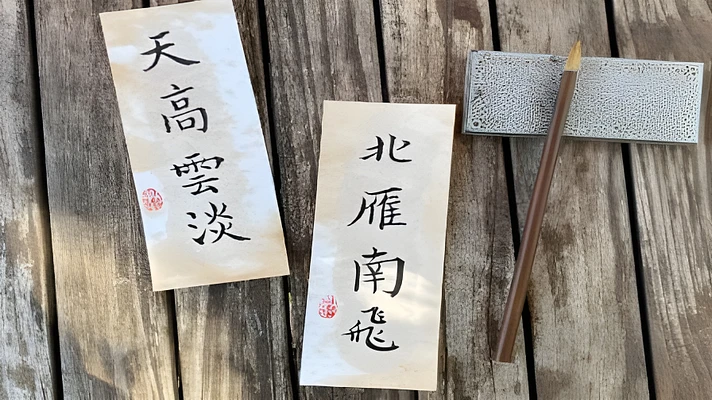 天高雲淡
北雁南飛